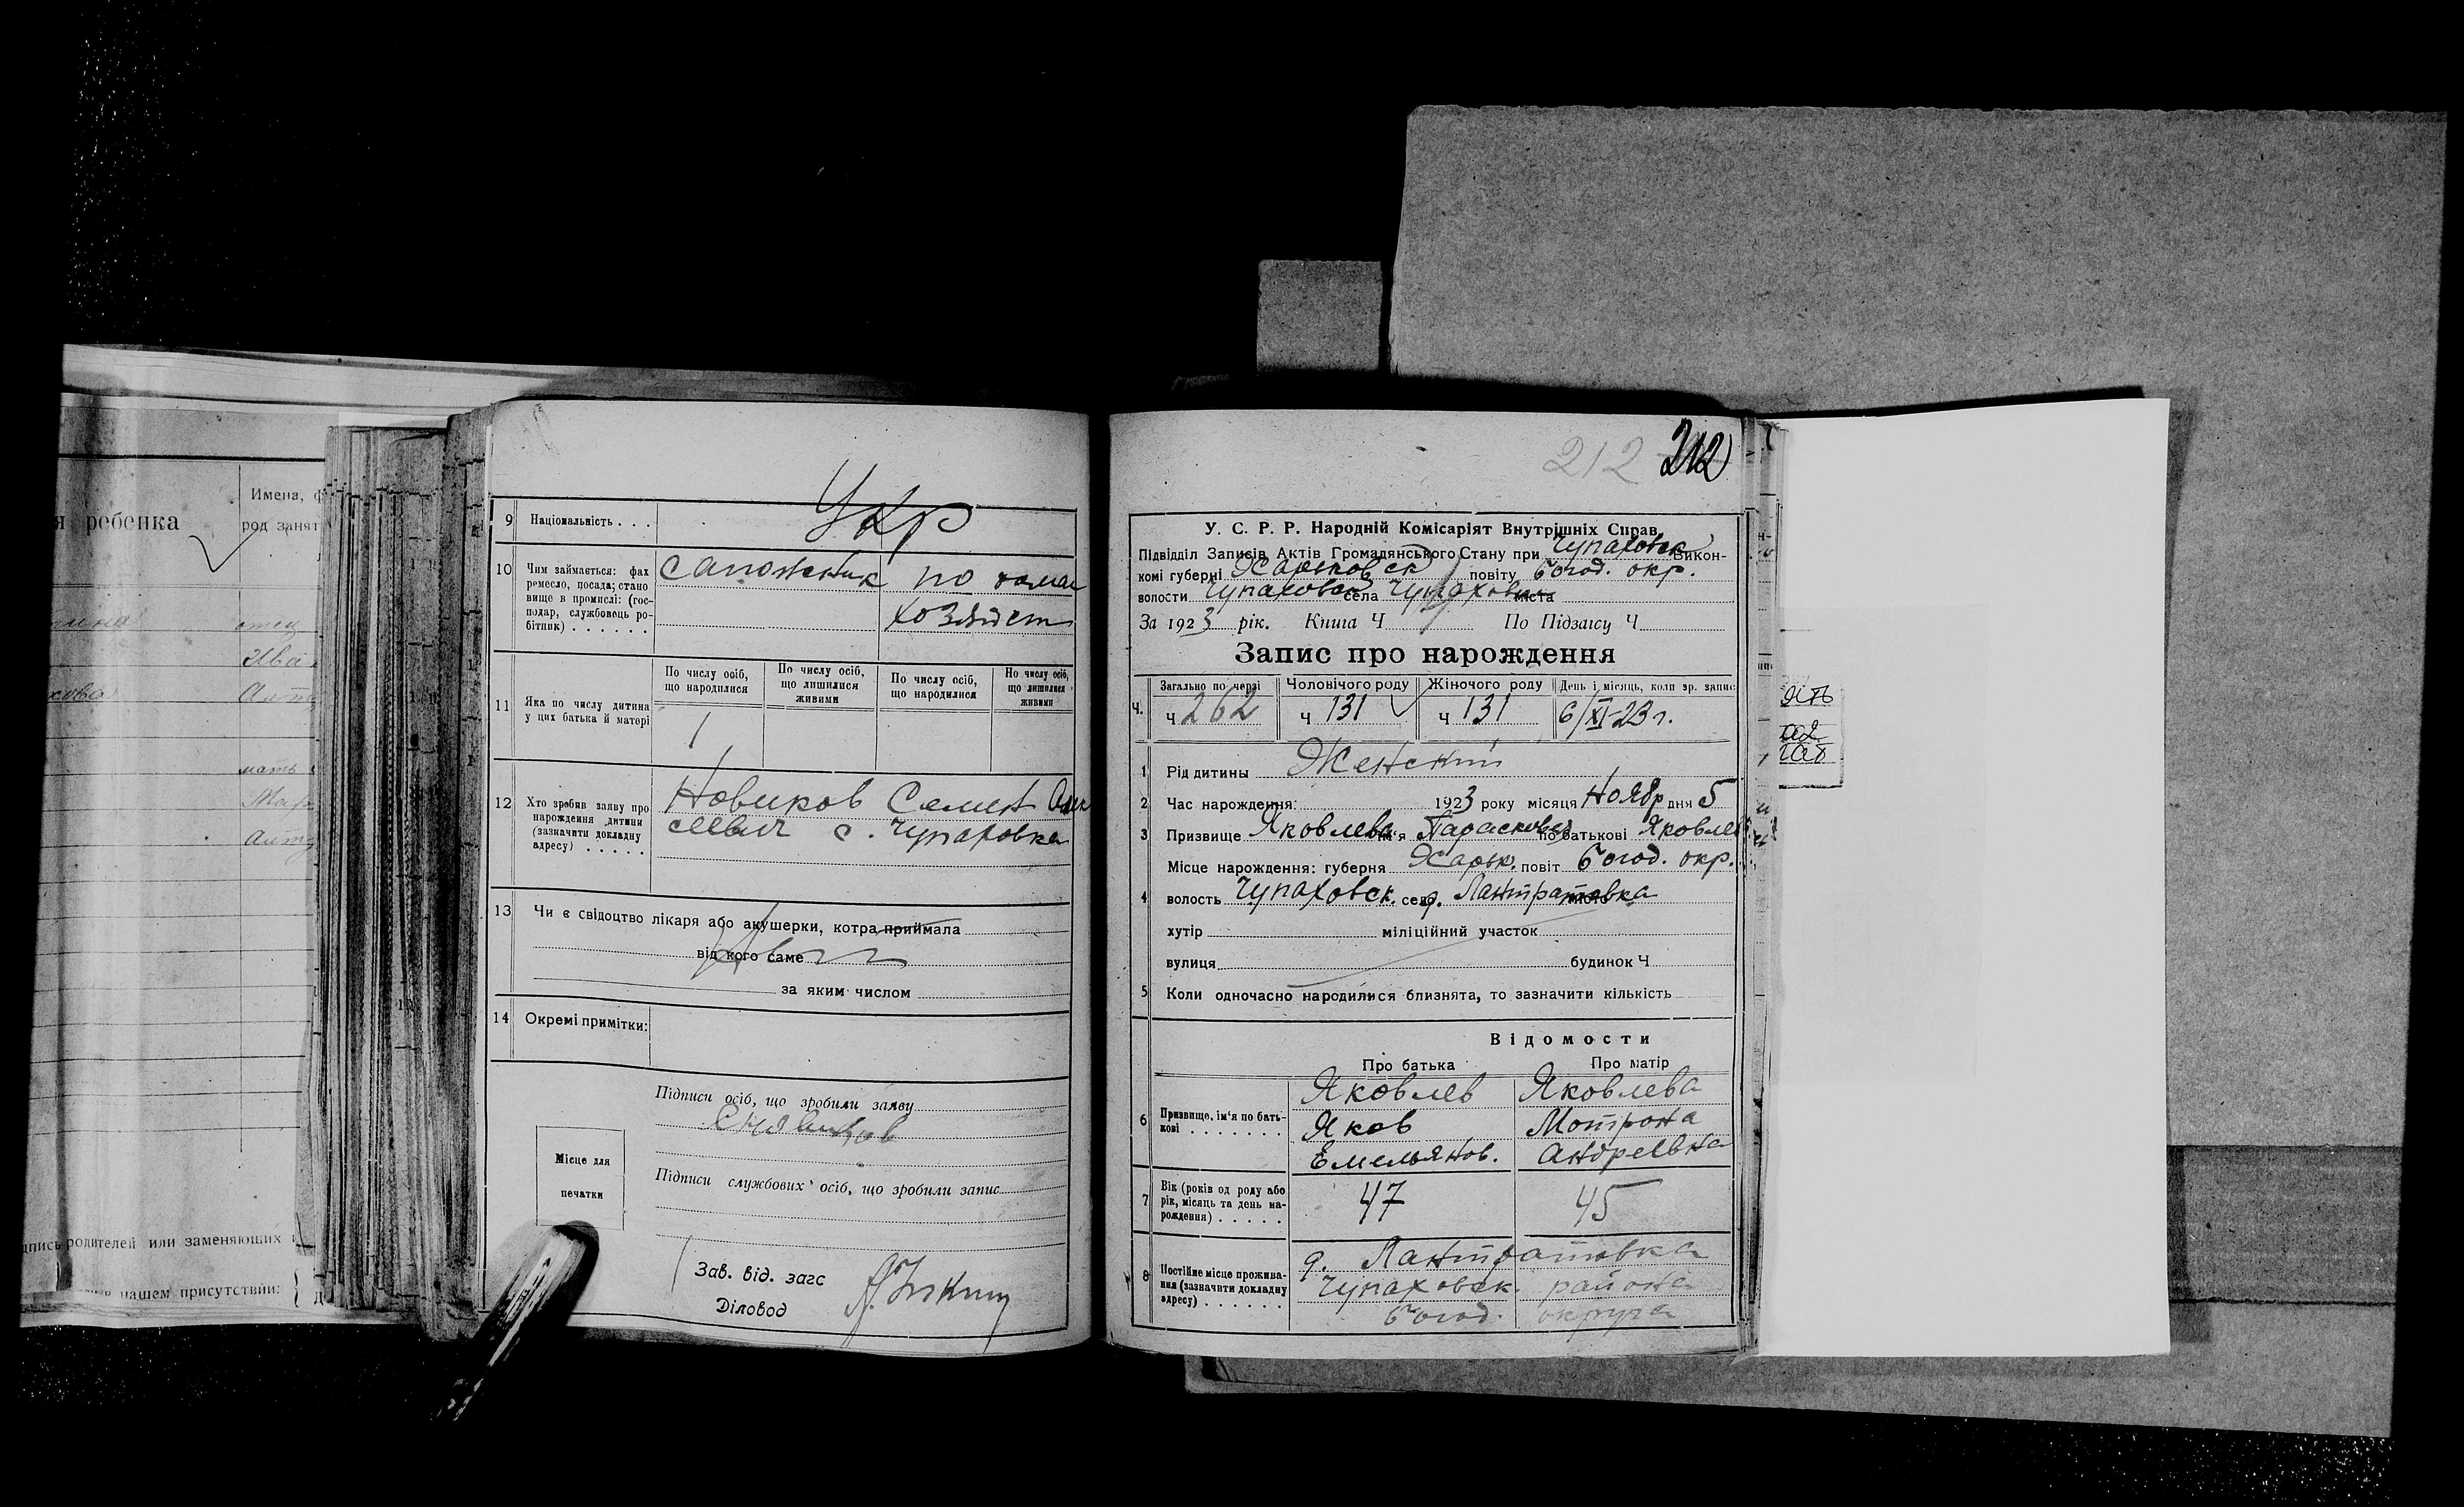 я ребенка
Имена, ф
род занят
отец
Ива
мать
пись родителей или заменяющих
в нашем присутствии:
9 Національність . . . Укр
10 Чим займається: фах ремесло, посада; становище в промислі: (господар, службовець робітник) . . . . . . сапожник по домаш
хозяйст
11 Яка по числу дитина у цих батька й матері
По числу осіб, що народилися
По числу осіб, що лишилися живими
По числу осіб, що народилися
По числу осіб, що лишилися живими
1
12 Хто зробив заяву про нарождення дитини (зазначити докладну адресу) . . . . . Новиков Семен Алек
сеевич с. Чупаховка
13 Чи є свідоцтво лікаря або акушерки, котра приймала
від кого саме
за яким числом
14 Окремі примітки:
Підписи осіб, що зробили заяву
Місце для
печатки
Підписи службових осіб, що зробили запис
Зав. від. загс
Діловод
212 212
У. С. Р. Р. Народній Комісаріят Внутрішніх Справ
Підвідділ Записів Актів Громадянського Стану при Чупаховск Викон-
комі губерні Харьковск повіту Богод. окр.
волости Чупаховск села Чупаховка міста
За 1923 рік. Книга Ч По Підзагсу Ч
Запис про нарождення
Ч. Загально по черзі Чоловічого роду Жіночого роду День і місяць, коли зр. запис
Ч 262 Ч 131 Ч 131 6/XI-23 г.
1 Рід дитини Женский
2 Час нарождення: 1923 року місяця Ноябр дня 5
3 Призвище Яковлева ім'я Парасковья по батькові Яковлев
Місце нарождення: губерня Харьк. повіт Богод. окр.
4 волость Чупаховск. село д. Лантратовка місто
хутір міліційний участок
вулиця будинок Ч
5 Коли одночасно народилися близнята, то зазначити кількість
Відомости
Про батька Про матір
6 Призвище, ім'я по батькові . . . . . . . .
Яковлев Яковлева
Яков Мотрона
Емельянов. Андреевна
7 Вік (років од роду або рік, місяць та день нарождення) . . . . . . 47 45
8 Постійне місце проживання (зазначити докладну адресу) . . . . . .
д. Лантратовка
Чупаховск. района
Богод. округа